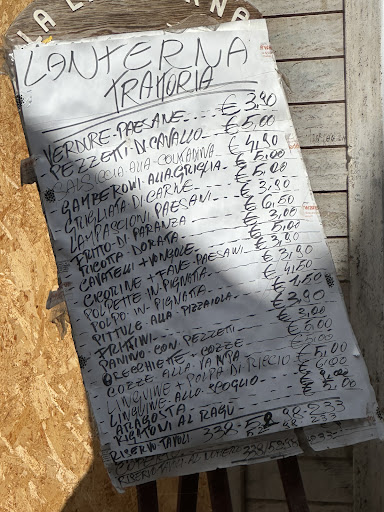 LA LANTERNA
LANTERNA
TRATTORIA
VERDURE PAESANE € 3,90
PEZZETTI DI CAVALLO € 5,00
SALSICCIA ALLA CONTADINA € 4,90
GAMBERONI ALLA GRIGLIA € 5,00
GRIGLIATA DI CARNE € 5,00
LAMPASCIONI PAESANI € 3,90
FRITTO DI PARANZA € 6,50
RICOTA DORATA € 3,00
CAVATELLI + VONGOLE € 5,00
CICORINE + FAVE PAESANI € 3,90
POLPETTE IN PIGNATA € 4,50
POLPO IN PIGNATA
PITTULE ALLA PIZZAIOLA € 1,50
FRITTINI € 3,90
PANINO CON PEZZETTI € 3,00
ORECCHIETTE + COZZE € 5,00
COZZE ALLA TARANTA € 5,00
LINGUINE + POLPA DI RICCIO € 5,00
LINGUINE ALLO SCOGLIO € 6,00
ARAGOSTA
RIGATONI AL RAGU € 5,00
RISERVO TAVOLI